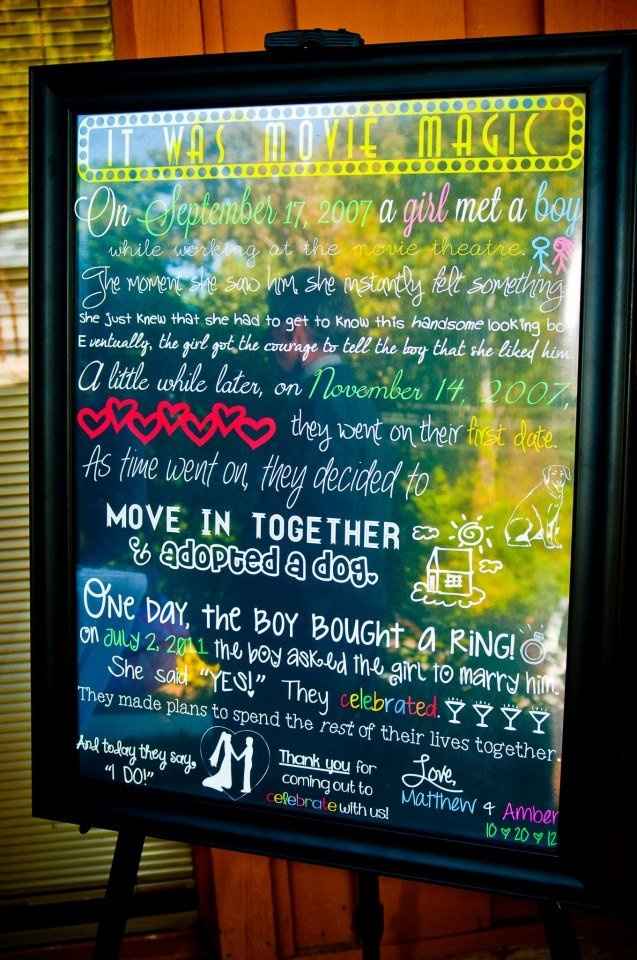 IT WAS MOVIE MAGIC
On September 17, 2007 a girl met a boy
while working at the movie theatre.
The moment she saw him, she instantly felt something
she just knew that she had to get to know this handsome looking bo
Eventually, the girl got the courage to tell the boy that she liked him.
A little while later, on November 14, 2007,
they went on their first date.
As time went on, they decided to
MOVE IN TOGETHER
& adopted a dog.
ONE DAY, the BOY BOUGHT a RING!
on July 2, 2011 the boy asked the girl to marry him.
She said "YES!" They celebrated.
They made plans to spend the rest of their lives together.
And today they say,
"I DO!"
M
Thank you for
coming out to
celebrate with us!
Love,
Matthew & Amber
10 ♥ 20 ♥ 12